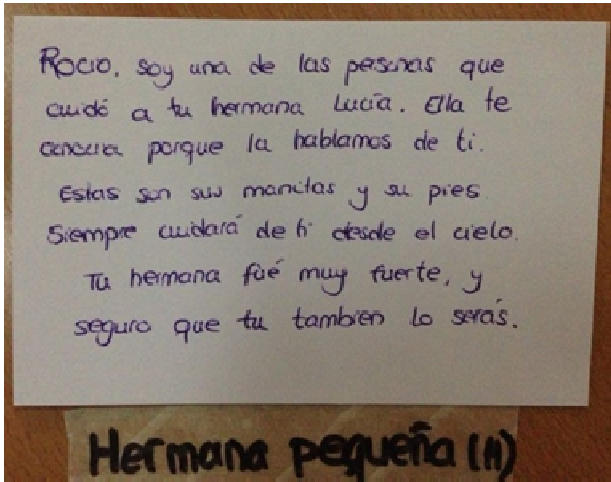 ROCIO, soy una de las personas que
cuidó a tu hermana Lucía. Ella te
conocía porque la hablamos de ti.
Estas son sus manitas y su pies
Siempre cuidará de ti desde el cielo.
Tu hermana fué muy fuerte, y
seguro que tu tambien lo serás.
Hermana pequeña (11)